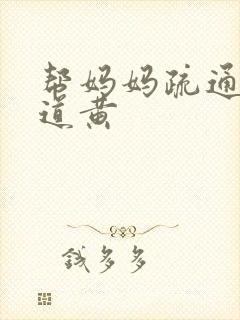 帮妈妈疏通
道黄
钱多多